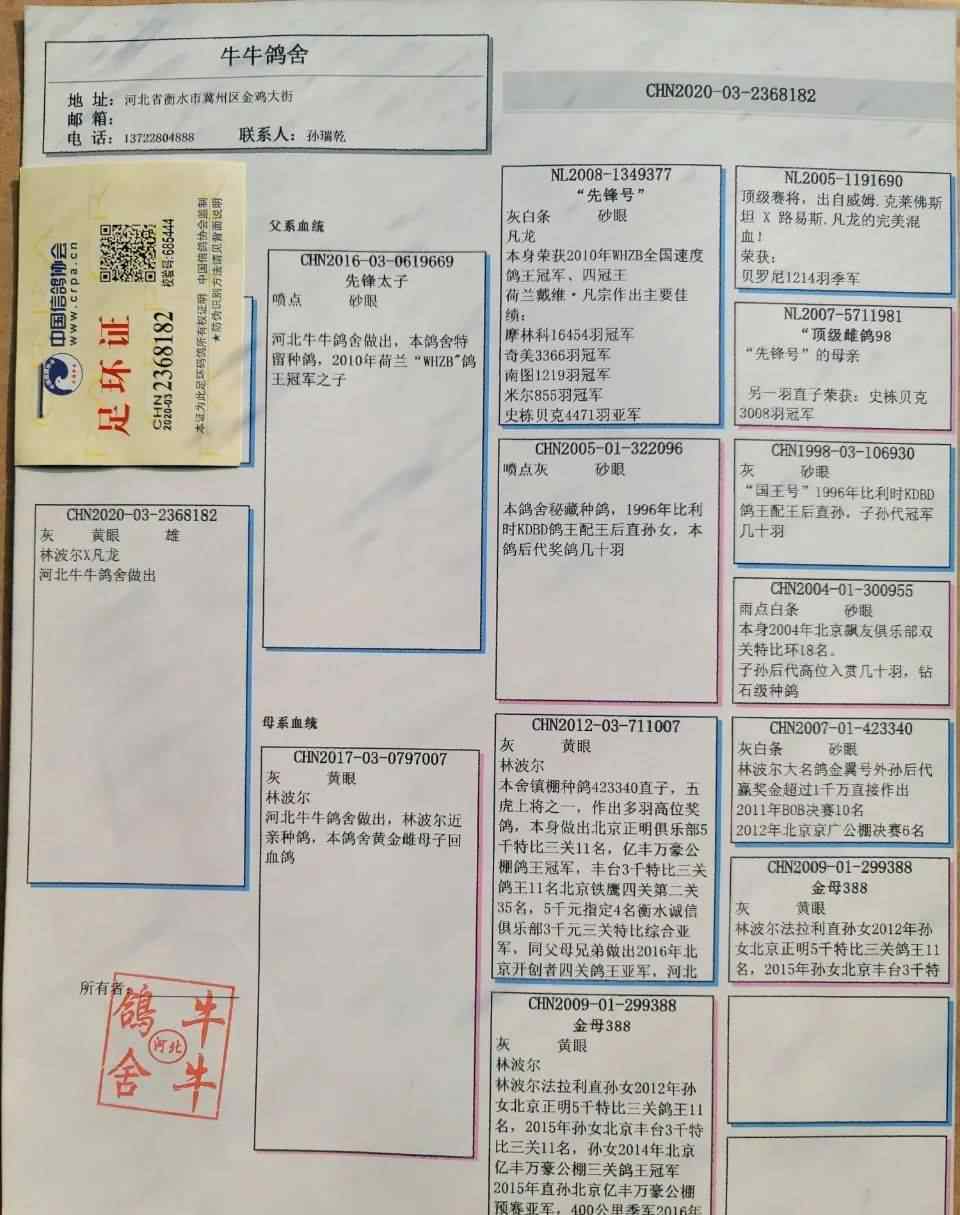 牛牛鸽舍
地 址：河北省衡水市冀州区金鸡大街
邮 箱：
电 话：13722804888 联系人：孙瑞乾
CHN2020-03-2368182
中国信鸽协会
www.crpa.cn
校验码:685444
足环证
CHN 2020-03 2368182
本证为此足环码鸽所有权证明 中国信鸽协会监制
★防伪识别方法请见背面说明
CHN2020-03-2368182
灰 黄眼 雄
林波尔X凡龙
河北牛牛鸽舍做出
所有者：
鸽舍
河北
牛牛
父系血统
CHN2016-03-0619669
先锋太子
喷点 砂眼
河北牛牛鸽舍做出，本鸽舍特
留种鸽，2010年荷兰“WHZB"鸽
王冠军之子
母系血统
CHN2017-03-0797007
灰 黄眼
林波尔
河北牛牛鸽舍做出，林波尔近
亲种鸽，本鸽舍黄金雌母子回
血鸽
NL2008-1349377
“先锋号”
灰白条 砂眼
凡龙
本身荣获2010年WHZB全国速度
鸽王冠军、四冠王
荷兰戴维·凡宗作出主要佳
绩：
摩林科16454羽冠军
奇美3366羽冠军
南图1219羽冠军
米尔855羽冠军
史栋贝克4471羽亚军
CHN2005-01-322096
喷点灰 砂眼
本鸽舍秘藏种鸽，1996年比利
时KDBD鸽王配王后直孙女，本
鸽后代奖鸽几十羽
CHN2012-03-711007
灰 黄眼
林波尔
本舍镇棚种鸽423340直子，五
虎上将之一，作出多羽高位奖
鸽，本身做出北京正明俱乐部5
千特比三关11名，亿丰万豪公
棚鸽王冠军，丰台3千特比三关
鸽王11名北京铁鹰四关第二关
35名，5千元指定4名衡水诚信
俱乐部3千元三关特比综合亚
军，同父母兄弟做出2016年北
京开创者四关鸽王亚军，河北
CHN2009-01-299388
金母388
灰 黄眼
林波尔
林波尔法拉利直孙女2012年孙
女北京正明5千特比三关鸽王11
名，2015年孙女北京丰台3千特
比三关11名，孙女2014年北京
亿丰万豪公棚三关鸽王冠军
2015年直孙北京亿丰万豪公棚
预赛亚军，400公里季军2016年
NL2005-1191690
顶级赛将，出自威姆.克莱佛斯
坦 X 路易斯.凡龙的完美混
血！
荣获：
贝罗尼1214羽季军
NL2007-5711981
“顶级雌鸽98
“先锋号”的母亲
另一羽直子荣获：史栋贝克
3008羽冠军
CHN1998-03-106930
灰 砂眼
“国王号”1996年比利时KDBD
鸽王配王后直孙，子孙代冠军
几十羽
CHN2004-01-300955
雨点白条 砂眼
本身2004年北京飘友俱乐部双
关特比环18名。
子孙后代高位入赏几十羽，钻
石级种鸽
CHN2007-01-423340
灰白条 砂眼
林波尔大名鸽金翼号外孙后代
赢奖金超过1千万直接作出
2011年BOB决赛10名
2012年北京京广公棚决赛6名
CHN2009-01-299388
金母388
灰 黄眼
林波尔法拉利直孙女2012年孙
女北京正明5千特比三关鸽王11
名，2015年孙女北京丰台3千特